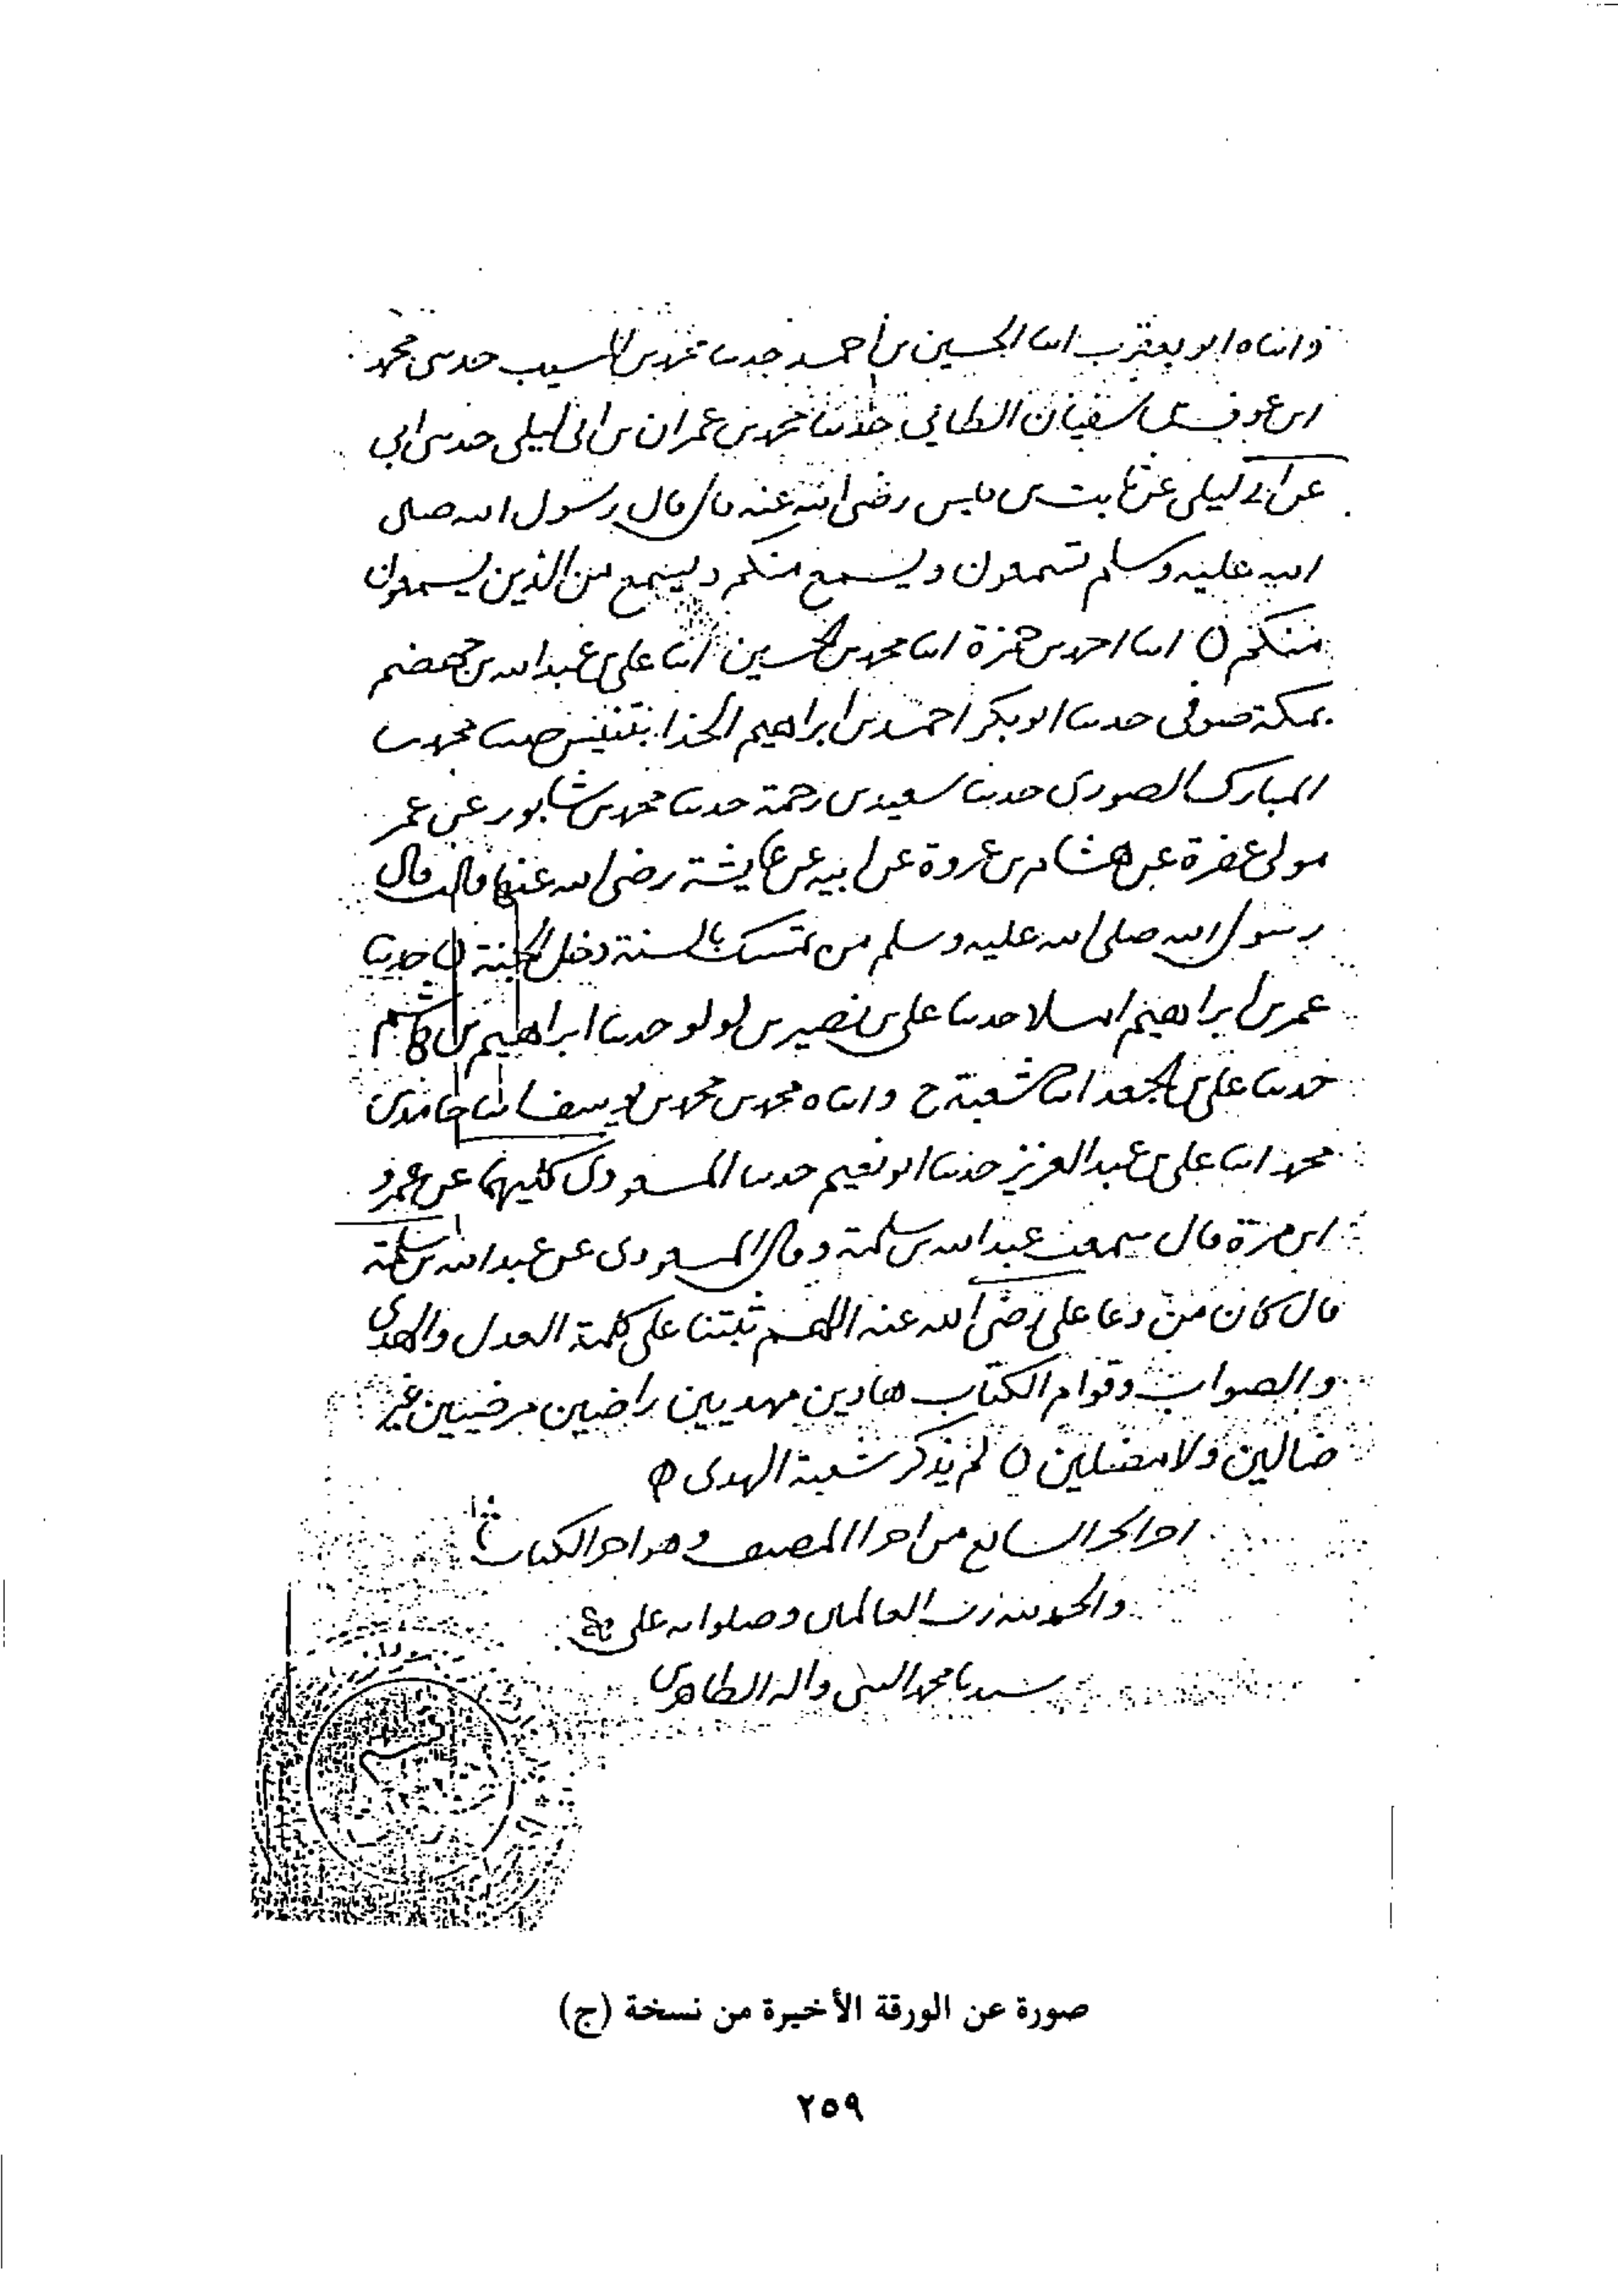 وانباه ابو يعقوب انبا الحسين بن احمد حدثنا محمد بن المسيب حدثني محمد
ابن عوف بن سفيان الطائي حدثنا محمد بن عمران بن ابي ليلى حدثني ابي
عن ابن ابي ليلى عن ثابت بن قيس رضي الله عنه قال قال رسول الله صلى
الله عليه وسلم تسمعون ويسمع منكم ويسمع من الذين يسمعون
منكم انبا احمد بن حمزة انبا محمد بن الحسين انبا علي بن عبدالله بن جهضم
بمكة صوفي حدثنا ابو بكر احمد بن ابراهيم الحذا بتنيس حدثنا محمد بن
المبارك الصوري حدثنا سعيد بن رحمة حدثنا محمد بن شابور عن عمر
مولى غفرة عن هشام بن عروة عن ابيه عن عايشة رضي الله عنها قالت قال
رسول الله صلى الله عليه وسلم من تمسك بالسنة دخل الجنة حدثنا
عمر بن ابراهيم املا حدثنا علي بن نصير بن لولو حدثنا ابراهيم بن هاشم
حدثنا علي بن الجعد انبا شعبة ح وانباه محمد بن محمد بن يوسف انبا حامد بن
محمد انبا علي بن عبدالعزيز حدثنا ابو نعيم حدثنا المسعودي كليهما عن عمرو
ابن مرة قال سمعت عبدالله بن سلمة وقال المسعودي عن عبدالله بن سلمة
قال كان من دعا علي رضي الله عنه اللهم ثبتنا على كلمة العدل والهدى
والصواب وقوام الكتاب هادين مهديين راضين مرضيين غير
ضالين ولا مضلين لم يذكر شعبة الهدى
اخر الجز السابع من اجزا المصنف وهو اخر الكتاب
والحمد لله رب العالمين وصلواته على
سيدنا محمد النبي واله الطاهرين
صورة عن الورقة الأخيرة من نسخة (ج)
٢٥٩